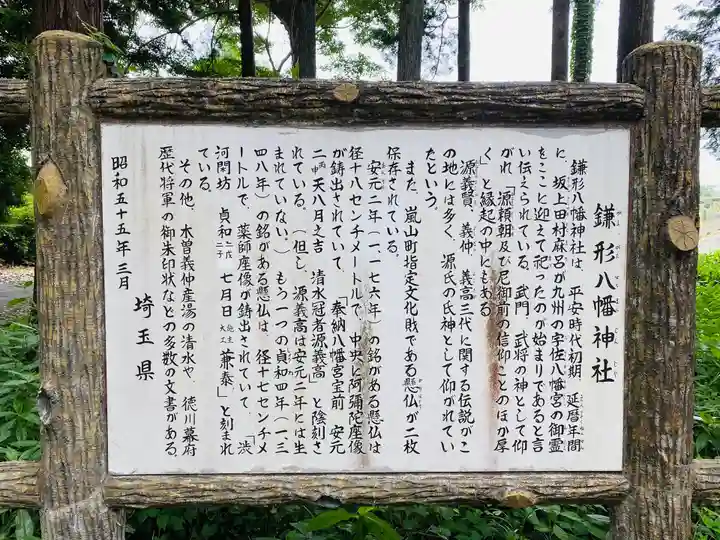 鎌形八幡神社
鎌形八幡神社は、平安時代初期、延暦年間
に、坂上田村麻呂が九州の宇佐八幡宮の御霊
をここに迎えて祀ったのが始まりであると言
い伝えられている。武門、武将の神として仰
がれ、「源頼朝及び尼御前の信仰ことのほか厚
く」と縁起の中にもある。
源義賢、義仲、義高三代に関する伝説がこ
の地には多く、源氏の氏神として仰がれてい
たという。
また、嵐山町指定文化財である懸仏が二枚
保存されている。
安元二年(一一七六年)の銘がある懸仏は
径十八センチメートルで、中央に阿弥陀座像
が鋳出されていて、「奉納八幡宮宝前 安元
二丙申天八月之吉 清水冠者源義高」と陰刻さ
れている。(但し、源義高は安元二年には生
まれていない。)もう一つの貞和四年(一三
四八年)の銘がある懸仏は、径十七センチメ
ートルで、薬師座像が鋳出されていて、「渋
河閑坊 貞和二二戊子七月日施主大工兼泰」と刻まれ
ている。
その他、木曽義仲産湯の清水や、徳川幕府
歴代将軍の御朱印状などの多数の文書がある。
昭和五十五年三月
埼玉県